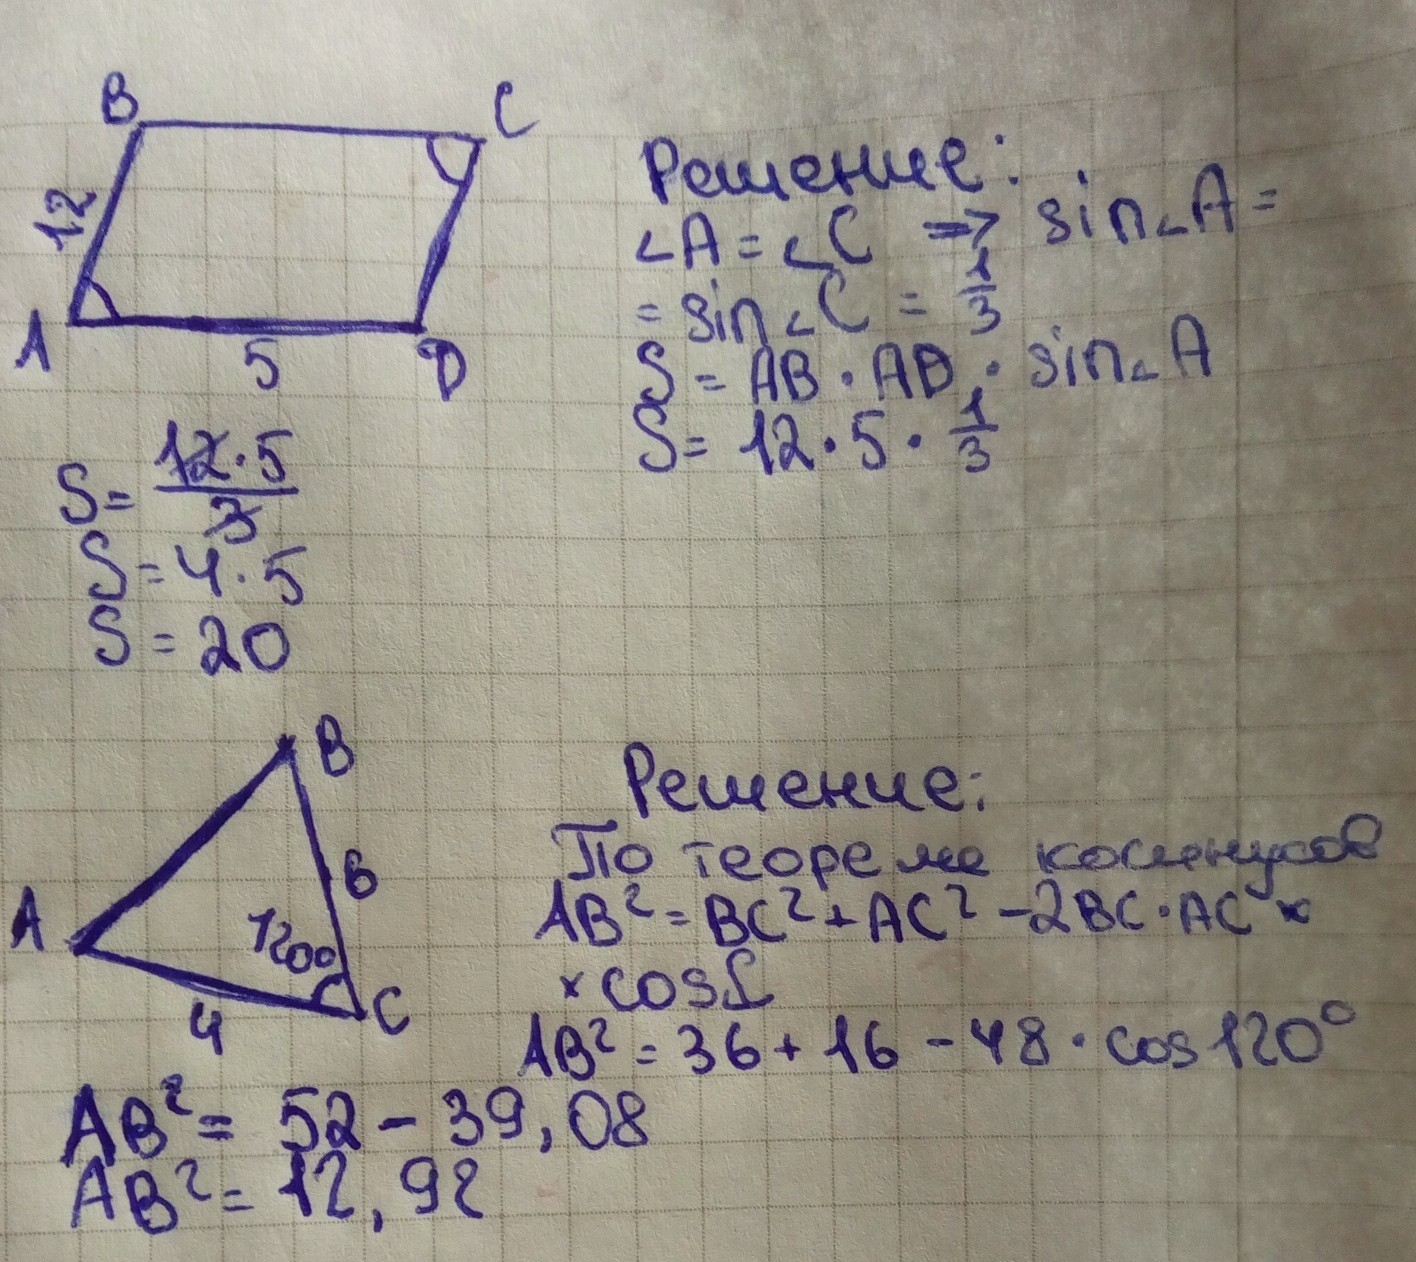 B
C
12
A
5
D
Решение:
∠A = ∠C => sin∠A =
= sin∠C = 1/3
S = AB · AD · sin∠A
S = 12 · 5 · 1/3
S = 12·5/3
S = 4·5
S = 20
B
6
A
120°
4
C
Решение:
По теореме косинусов
AB² = BC² + AC² - 2BC · AC ×
× cos
AB² = 36 + 16 - 48 · cos120°
AB² = 52 - 39,08
AB² = 12,92